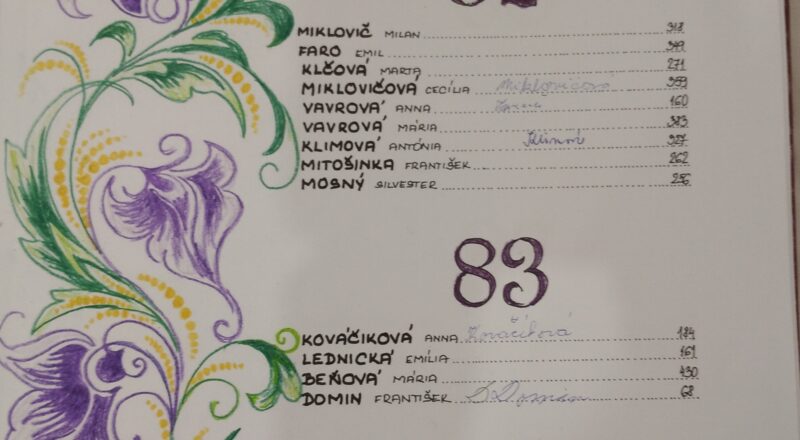 MIKLOVIČ MILAN 318
FARO EMIL 349
KLČOVÁ MARTA 271
MIKLOVIČOVÁ CECÍLIA Miklovičová 359
VAVROVÁ ANNA 160
VAVROVÁ MÁRIA 383
KLIMOVÁ ANTÓNIA 327
MITOŠINKA FRANTIŠEK 262
MOSNÝ SILVESTER 256
83
KOVÁČIKOVÁ ANNA Kováčiková 184
LEDNICKÁ EMÍLIA 161
BEŇOVÁ MÁRIA 430
DOMIN FRANTIŠEK Domin 68